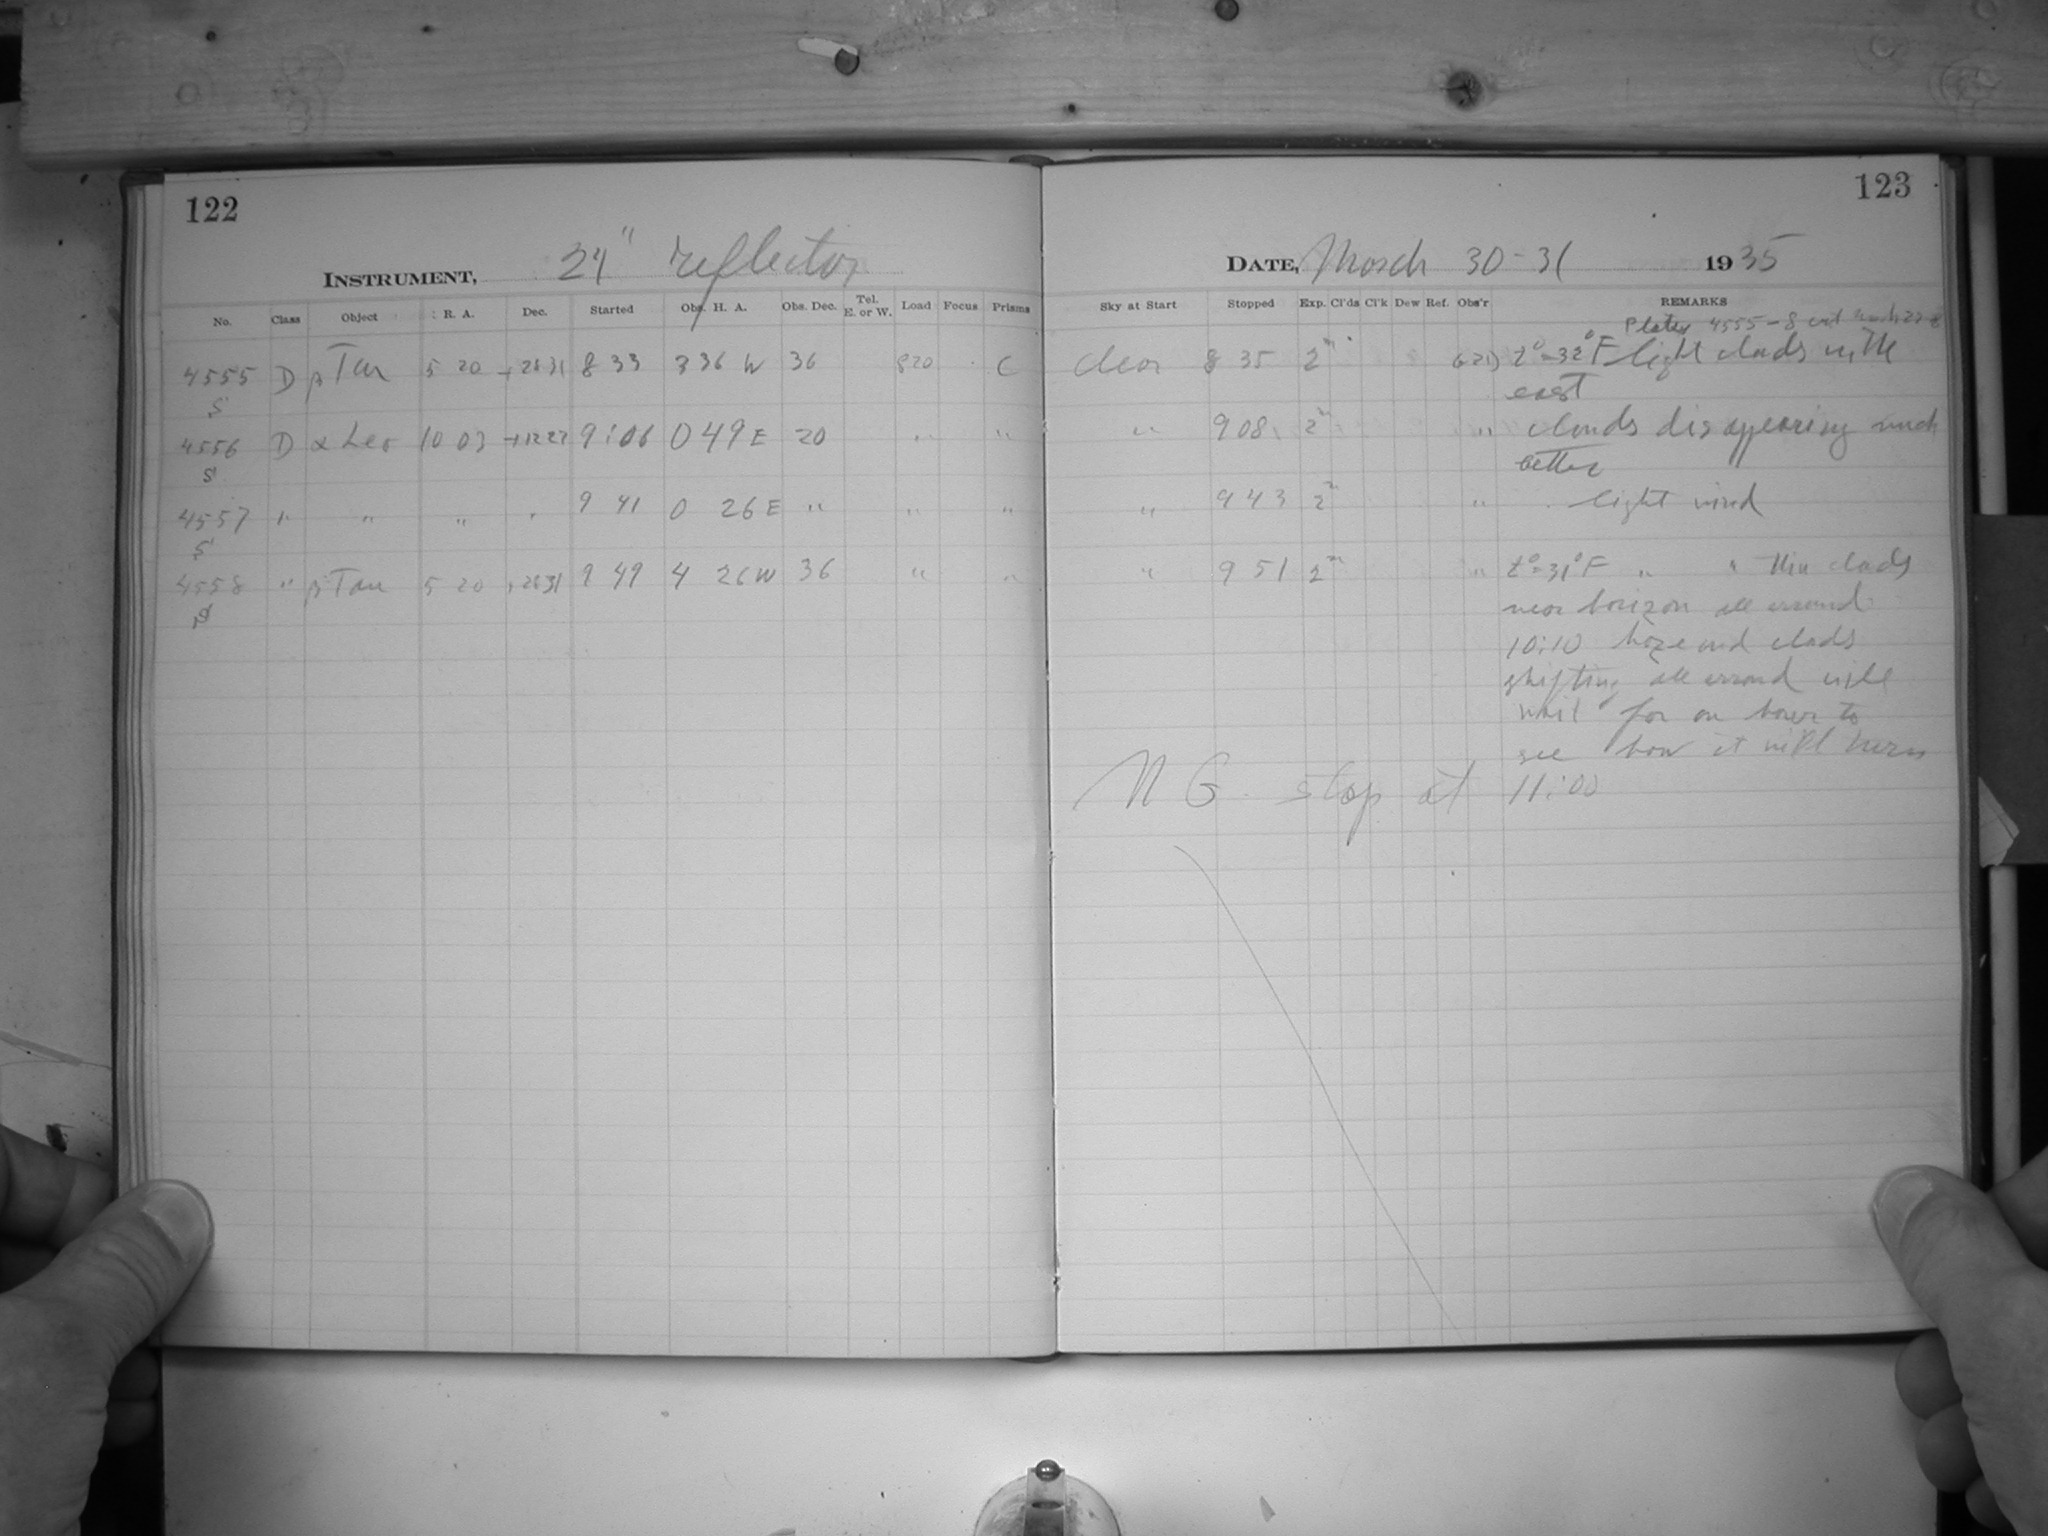 122
INSTRUMENT, 24" reflector
No. Class Object R. A. Dec. Started Obs. H. A. Obs. Dec. Tel. E. or W. Load Focus Prisms
4555 D β Tau 5 20 +28 31 8 33 3 36 W 36 820 C
S
4556 D α Leo 10 03 +12 27 9:06 0 49 E 20 " "
S
4557 " " " " 9 41 0 26 E " " "
S
4558 " β Tau 5 20 +28 31 9 49 4 26 W 36 " "
S
123
DATE, March 30-31 1935
Sky at Start Stopped Exp. Cl'ds Cl'k Dew Ref. Obs'r REMARKS
Plates 4555-8
clear 8 35 2m t°=32°F light clouds in the
east
" 9 08 2m " clouds disappearing much
better
" 9 43 2m " light wind
" 9 51 2m " t°=31°F " " thin clouds
near horizon all around
10:10 haze and clouds
shifting all around will
wait for an hour to
see how it will turn
N G. stop at 11:00